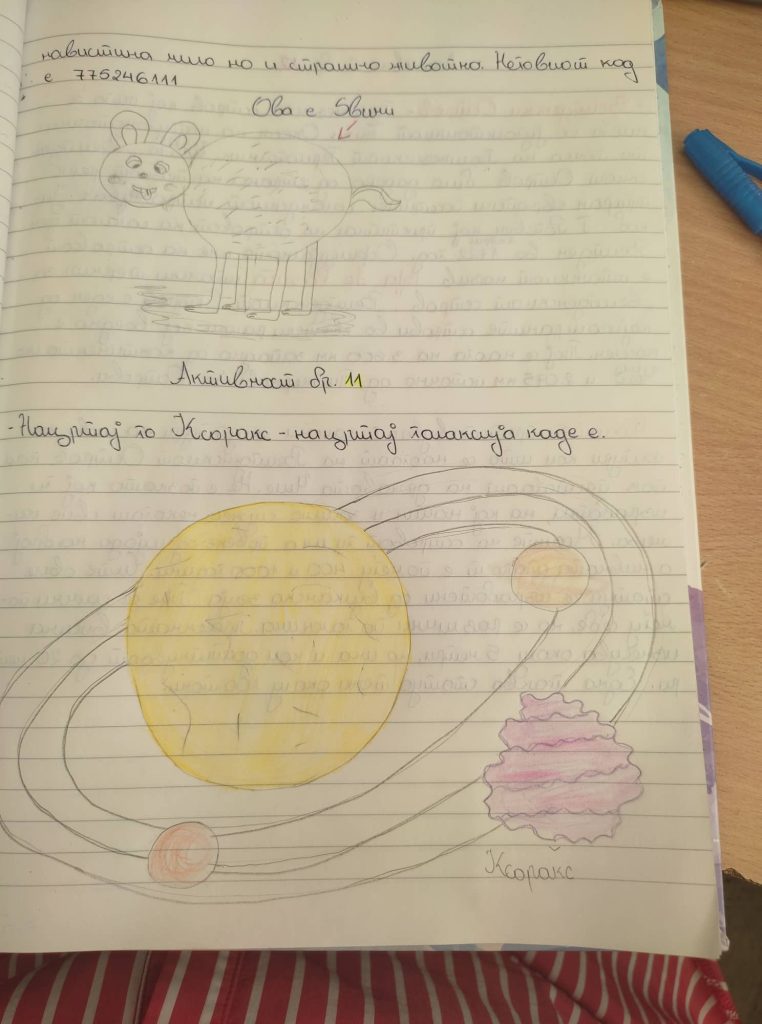 навистина мило но и страшно животно. Неговиот код
е 775246111
Ова е 5вини
Активност бр. 11
- Нацртај го Ксоракс - нацртај галаксија каде е.
Ксоракс